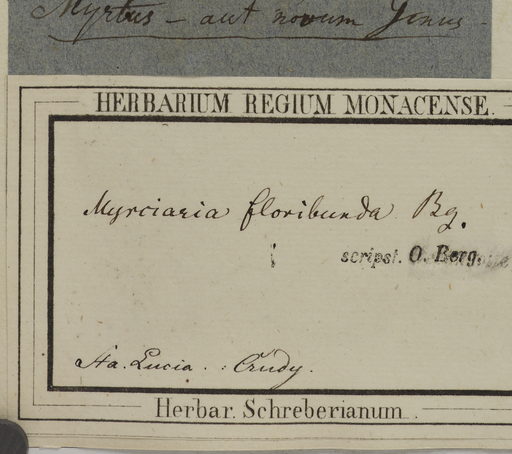 Myrtus – aut novum Genus
HERBARIUM REGIUM MONACENSE.
Myrciaria floribunda Bg.
scripst. O. Berg.
Sta. Lucia. : Crudy.
Herbar. Schreberianum